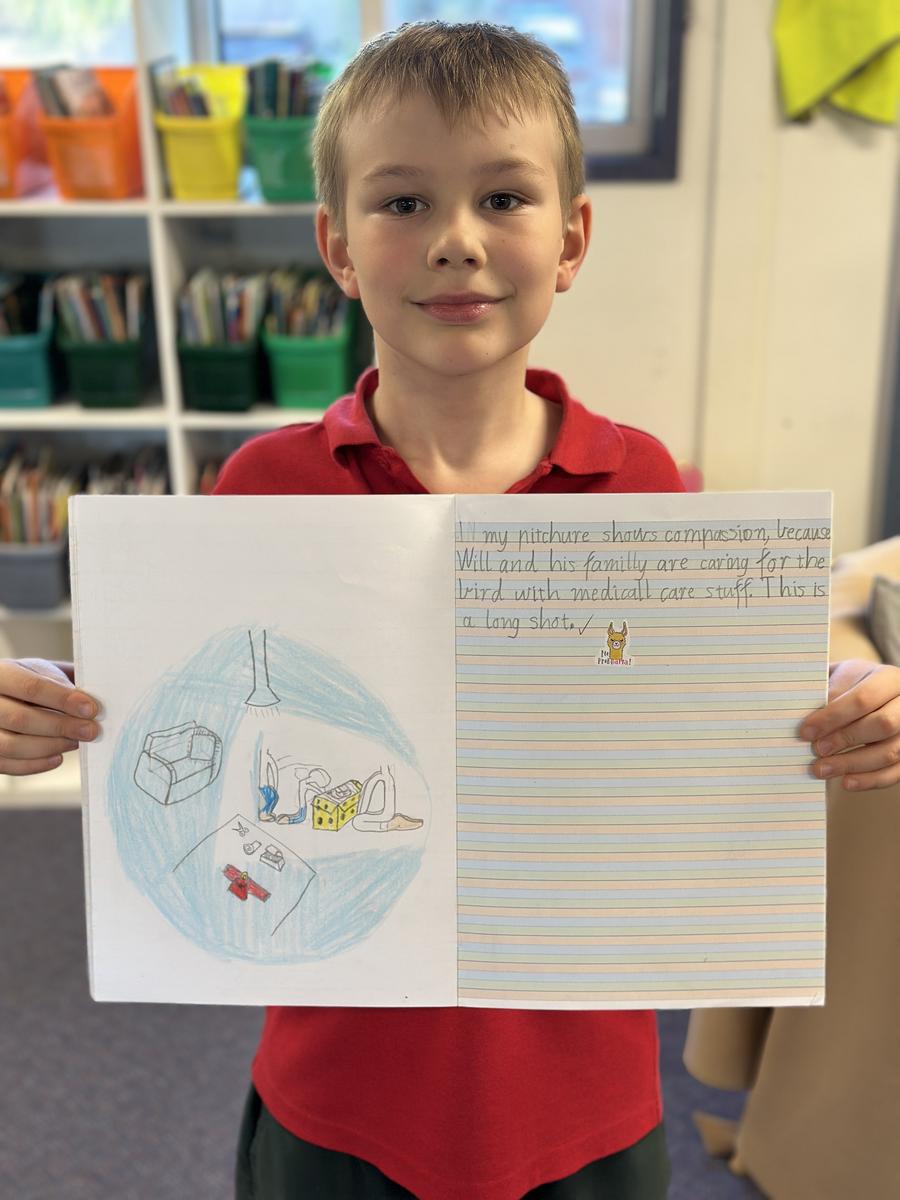 my pitchure shows compassion, because
Will and his familly are caring for the
bird with medicall care stuff. This is
a long shot.
No
Probllama!